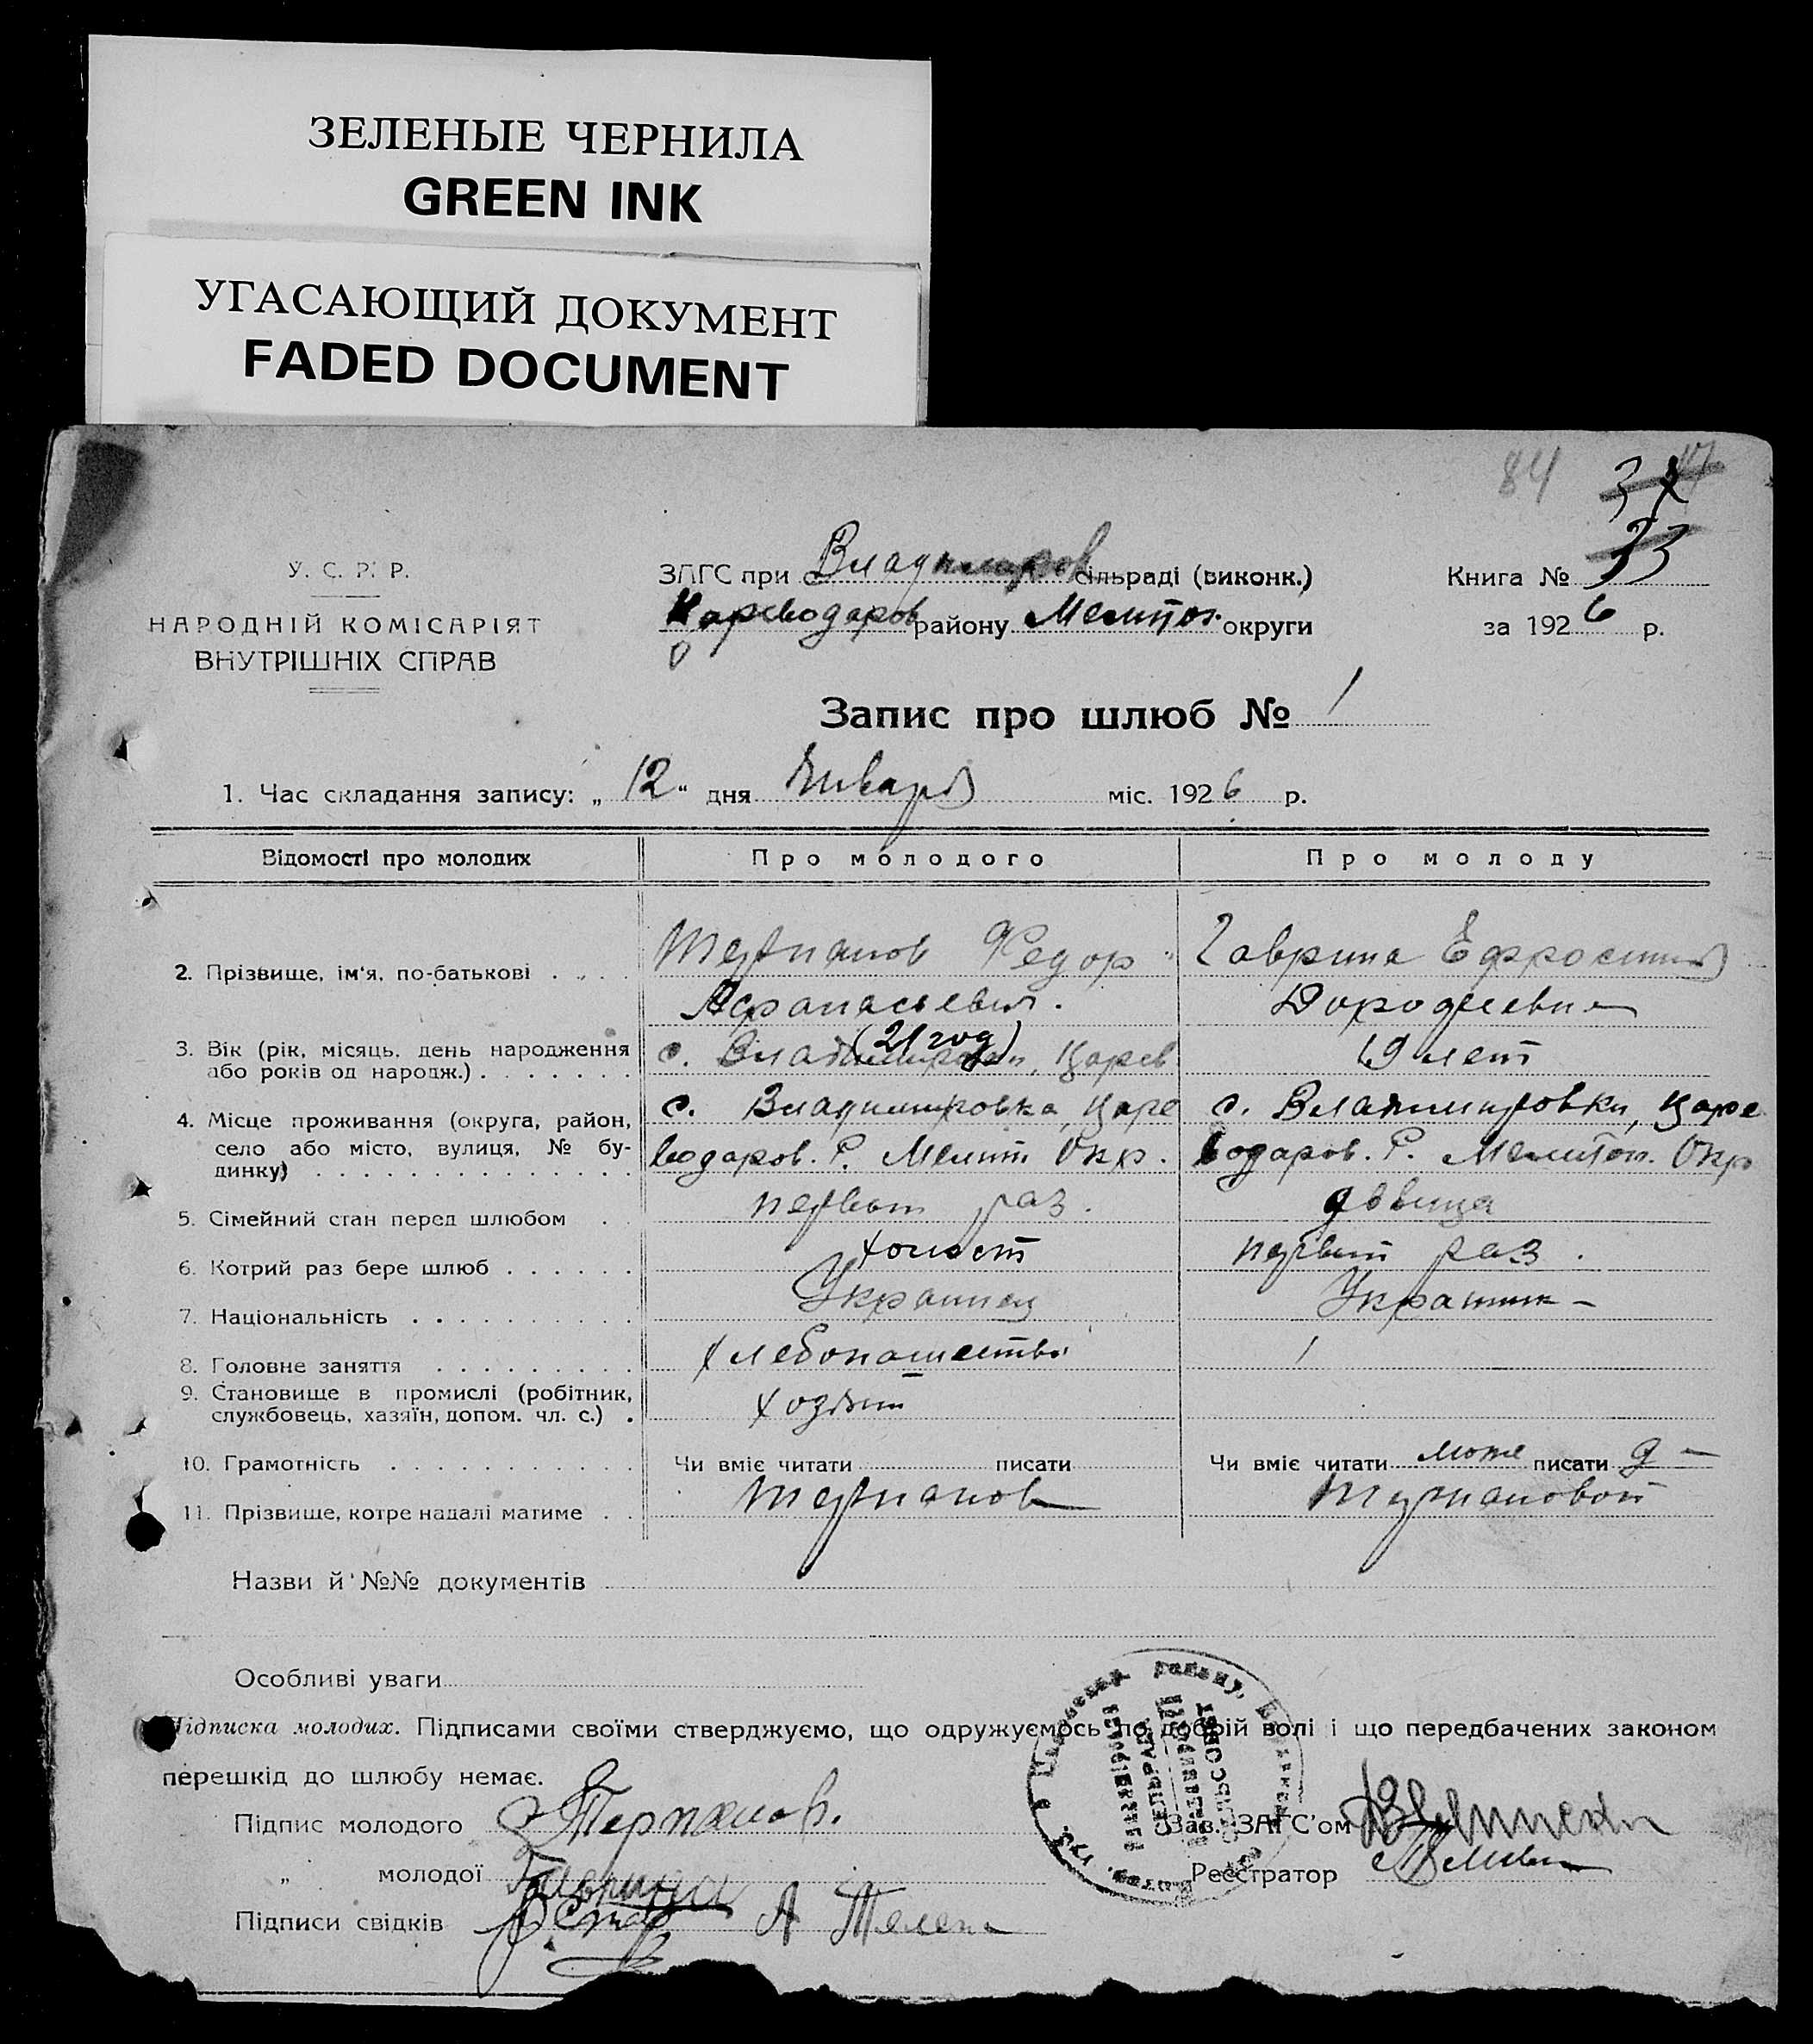 ЗЕЛЕНЫЕ ЧЕРНИЛА
GREEN INK
УГАСАЮЩИЙ ДОКУМЕНТ
FADED DOCUMENT
84
33
У. С. Р. Р.
НАРОДНІЙ КОМІСАРІЯТ
ВНУТРІШНІХ СПРАВ
ЗАГС при с. Владимиров сільраді (виконк.)
району Мелитоп. округи
Книга №
за 1926 р.
Запис про шлюб № 1
1. Час складання запису: „12“ дня Января міс. 1926 р.
Відомості про молодих Про молодого Про молоду
2. Прізвище, ім'я, по-батькові . . . . Терпанов Федор Гаврина Ефросиния
Афанасьевич. Дорофеевна
3. Вік (рік, місяць, день народження або років од народж.) . . . . . . . (21 год) с. Владимировки, Царев 19 лет
4. Місце проживання (округа, район, село або місто, вулиця, № будинку) с. Владимировка, Царе с. Владимировки, Царе
водаров. Р. Мелит Окр. водаров. Р. Мелитоп. Окр
5. Сімейний стан перед шлюбом . . первый раз. дѣвица
6. Котрий раз бере шлюб . . . . . . холост первый раз.
7. Національність . . . . . . . . . . Украинец Украинк-
8. Головне заняття . . . . . . . . . хлебопашество
9. Становище в промислі (робітник, службовець, хазяїн, допом. чл. с.) . хозяин
10. Грамотність . . . . . . . . . . . Чи вміє читати писати Чи вміє читати може писати
11. Прізвище, котре надалі матиме . . Терпанов Терпановой
Назви й №№ документів
Особливі уваги
Підписка молодих. Підписами своїми стверджуємо, що одружуємось по добрій волі і що передбачених законом
перешкід до шлюбу немає.
Підпис молодого Терпанов.
Зав. ЗАГС'ом
„ молодої Гаврина
Реєстратор
Підписи свідків А